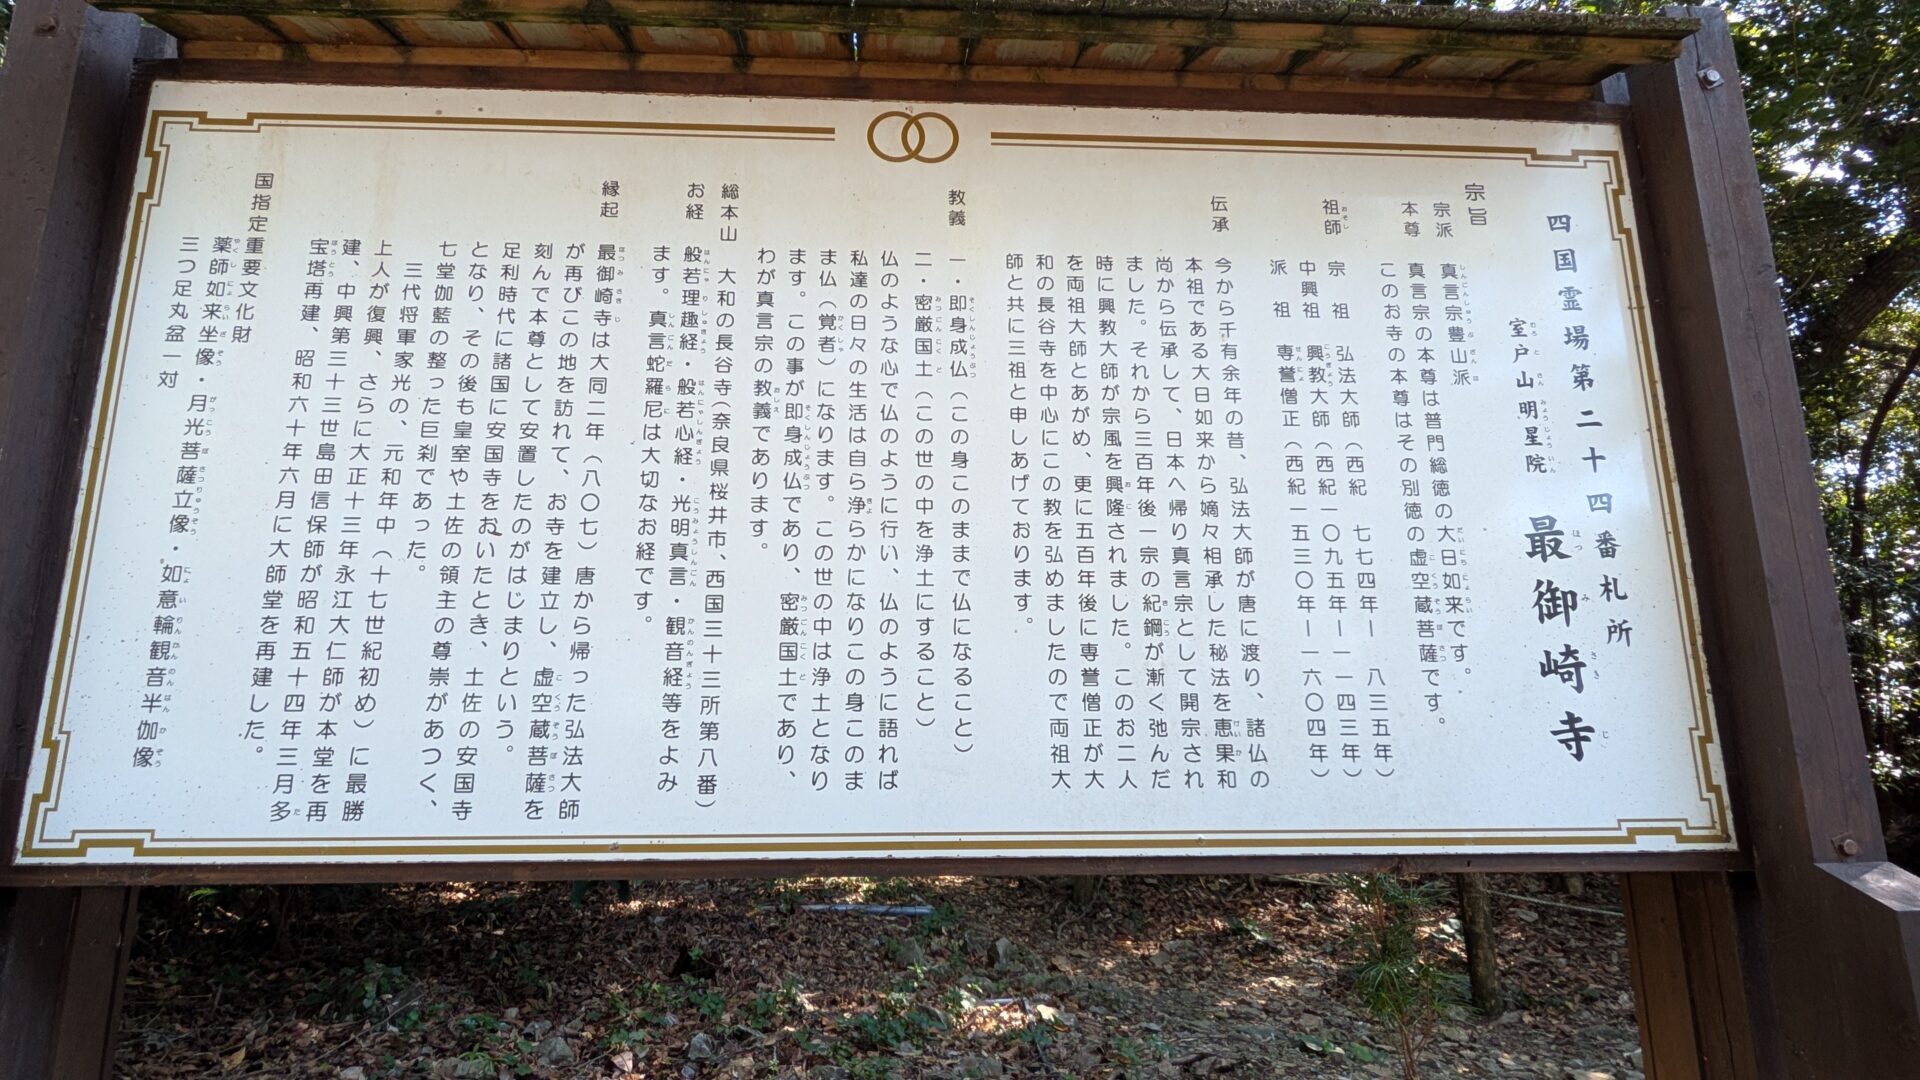 四国霊場第二十四番札所
室戸山明星院 最御崎寺
宗旨
宗派 真言宗豊山派
本尊 真言宗の本尊は普門総徳の大日如来です。
このお寺の本尊はその別徳の虚空蔵菩薩です。
祖師 宗祖 弘法大師（西紀 七七四年ー 八三五年）
中興祖 興教大師（西紀一〇九五年ー一一四三年）
派祖 専誉僧正（西紀一五三〇年ー一六〇四年）
伝承 今から千有余年の昔、弘法大師が唐に渡り、諸仏の
本祖である大日如来から嫡々相承した秘法を恵果和
尚から伝承して、日本へ帰り真言宗として開宗され
ました。それから三百年後一宗の紀綱が漸く弛んだ
時に興教大師が宗風を興隆されました。このお二人
を両祖大師とあがめ、更に五百年後に専誉僧正が大
和の長谷寺を中心にこの教を弘めましたので両祖大
師と共に三祖と申しあげております。
教義 一・即身成仏（この身このままで仏になること）
二・密厳国土（この世の中を浄土にすること）
仏のような心で仏のように行い、仏のように語れば
私達の日々の生活は自ら浄らかになりこの身このま
ま仏（覚者）になります。この世の中は浄土となり
ます。この事が即身成仏であり、密厳国土であり、
わが真言宗の教義であります。
総本山 大和の長谷寺（奈良県桜井市、西国三十三所第八番）
お経 般若理趣経・般若心経・光明真言・観音経等をよみ
ます。真言蛇羅尼は大切なお経です。
縁起 最御崎寺は大同二年（八〇七）唐から帰った弘法大師
が再びこの地を訪れて、お寺を建立し、虚空蔵菩薩を
刻んで本尊として安置したのがはじまりという。
足利時代に諸国に安国寺をおいたとき、土佐の安国寺
となり、その後も皇室や土佐の領主の尊崇があつく、
七堂伽藍の整った巨刹であった。
三代将軍家光の、元和年中（十七世紀初め）に最勝
上人が復興、さらに大正十三年永江大仁師が本堂を再
建、中興第三十三世島田信保師が昭和五十四年三月多
宝塔再建、昭和六十年六月に大師堂を再建した。
国指定重要文化財
薬師如来坐像・月光菩薩立像・如意輪観音半伽像
三つ足丸盆一対